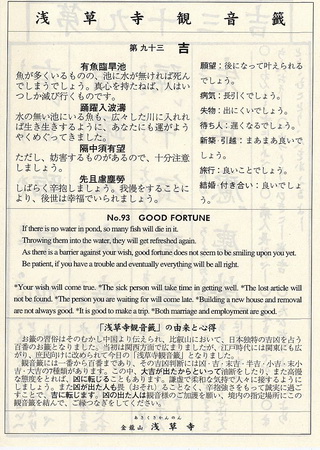 浅草寺観音籤
第九十三 吉
有魚臨旱池
魚が多くいるものの、池に水が無ければ死ん
でしまうでしょう。真心を持たねば、人はい
つしか滅び行くものです。
踴躍入波濤
水の無い池にいる魚も、広々した川に入れれ
ば生き生きするように、あなたにも運がよう
やくめぐってきました。
隔中須有望
ただし、妨害するものがあるので、十分注意
しましょう。
先且慮塵勞
しばらく辛抱しましょう。我慢をすることに
より、後世は幸福でいられましょう。
願望：後になって叶えられる
でしょう。
病気：長引くでしょう。
失物：出にくいでしょう。
待ち人：遅くなるでしょう。
新築・引越：まあまあ良いで
しょう。
旅行：良いことでしょう。
結婚・付き合い：良いでしょ
う。
No.93 GOOD FORTUNE
If there is no water in pond, so many fish will die in it.
Throwing them into the water, they will get refreshed again.
As there is a barrier against your wish, good fortune does not seem to be smiling upon you yet.
Be patient, if you have a trouble and eventually everything will be all right.
*Your wish will come true. *The sick person will take time in getting well. *The lost article will
not be found. *The person you are waiting for will come late. *Building a new house and removal
are not always good. *It is good to make a trip. *Both marriage and employment are good.
「浅草寺観音籤」の由来と心得
お籤の習俗はそのむかし中国より伝えられ、比叡山において、日本独特の吉凶を占う
百番のお籤となりました。当初は関西方面で広まりましたが、江戸時代には関東にも広
がり、庶民向けに改められて今日の「浅草寺観音籤」となりました。
観音籤には一番から百番まであり、その吉凶判断には凶・吉・末吉・半吉・小吉・末小
吉・大吉の7種類があります。この中、大吉が出たからといって油断をしたり、また高慢
な態度をとれば、凶に転じることもあります。謙虚で柔和な気持で人々に接するように
しましょう。また凶が出た人も畏（おそ）れることなく、辛抱強さをもって誠実に過ご
すことで、吉に転じます。凶の出た人は観音様のご加護を願い、境内の指定場所にこの
観音籤を結んで、ご縁つなぎをしてください。
あさくさかんのん
金龍山 浅草寺